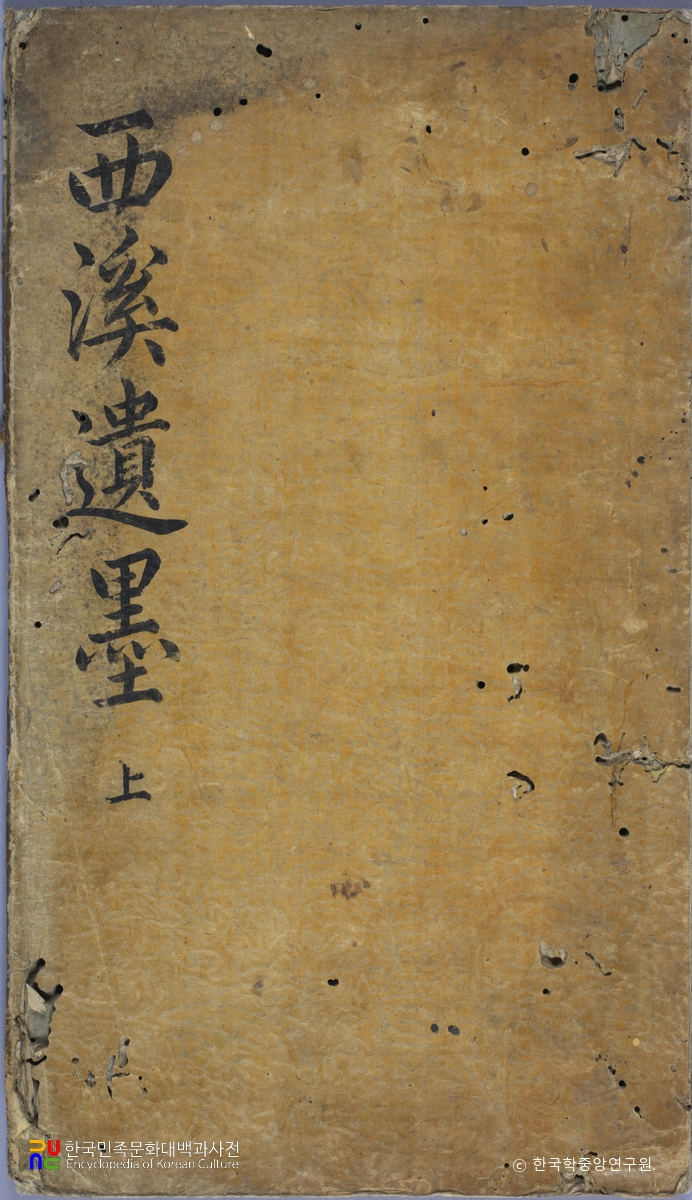 西溪遺墨 上
한국민족문화대백과사전
Encyclopedia of Korean Culture
© 한국학중앙연구원